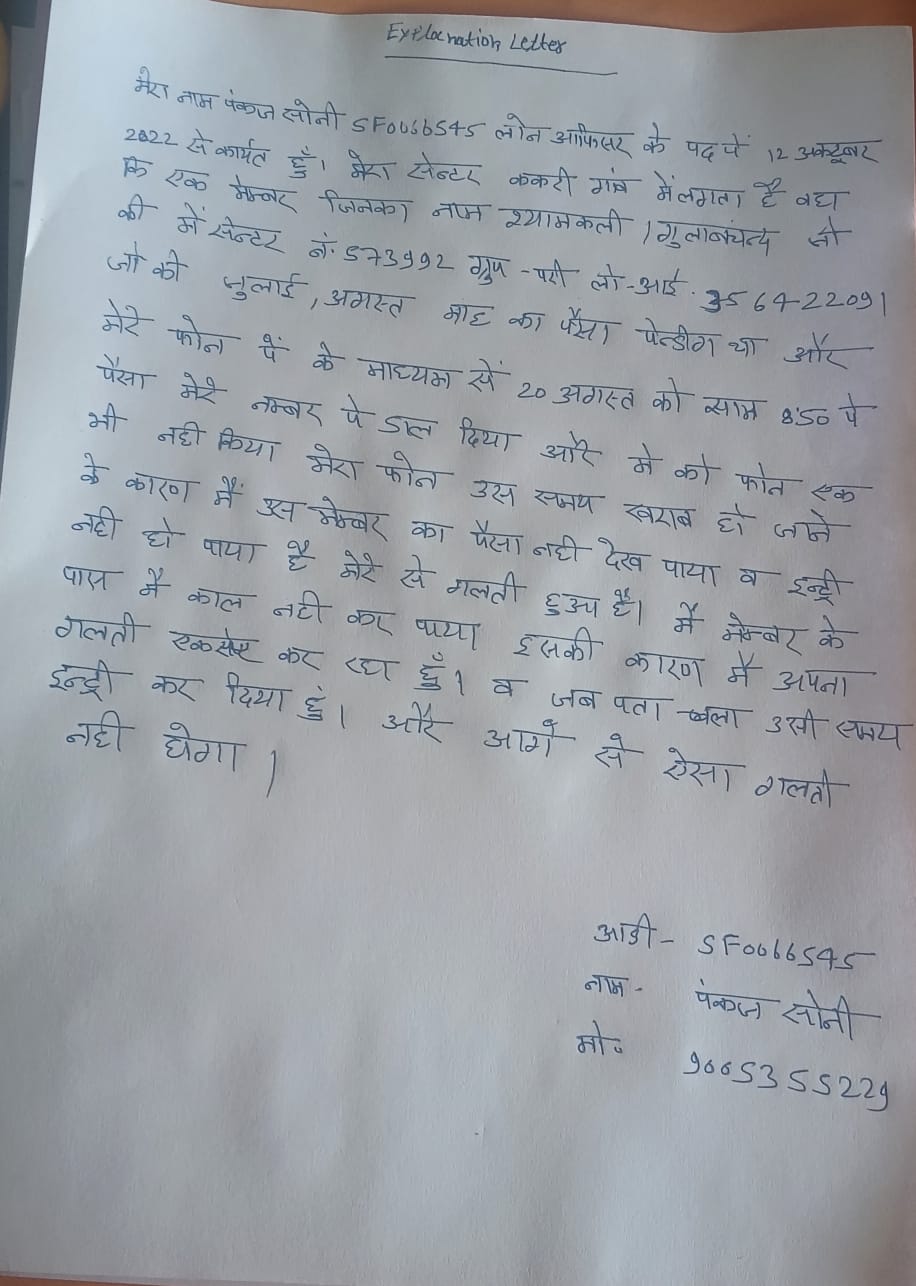 Explocnation Letter
मेरा नाम पंकज सोनी SF0066545 लोन आफिसर के पद पें 12 अक्टूबर
2022 से कार्यत हुँ। मेरा सेन्टर ककरी गांव में लगता है वहा
कि एक मेम्बर जिनका नाम श्यामकली / गुलाबचंन्द्र जी
की में सेन्टर नं. 573992 ग्रुप - परी लो-आई. 3564-22091
जो की जुलाई, अगस्त माह का पैसा पेन्डीग था और
मेरे फोन पें के माध्यम सें 20 अगस्त को साम 8:50 पे
पैसा मेरे नम्बर पे डाल दिया और मे को फोन एक
भी नही किया मेरा फोन उस समय खराब हो जाने
के कारण मैं उस मेम्बर का पैसा नही देख पाया व इन्ट्री
नही हो पाया है मेरे से गलती हुआ है। मैं मेम्बर के
पास मै काल नही कर पाया इसकी कारण मै अपना
गलती एकसेप्ट कर रहा हुँ। व जब पता चला उसी समय
इन्ट्री कर दिया हुं। और आगे से ऐसा गलती
नही होगा।
आडी - SF0066545
नाम - पंकज सोनी
मो. 9665355229